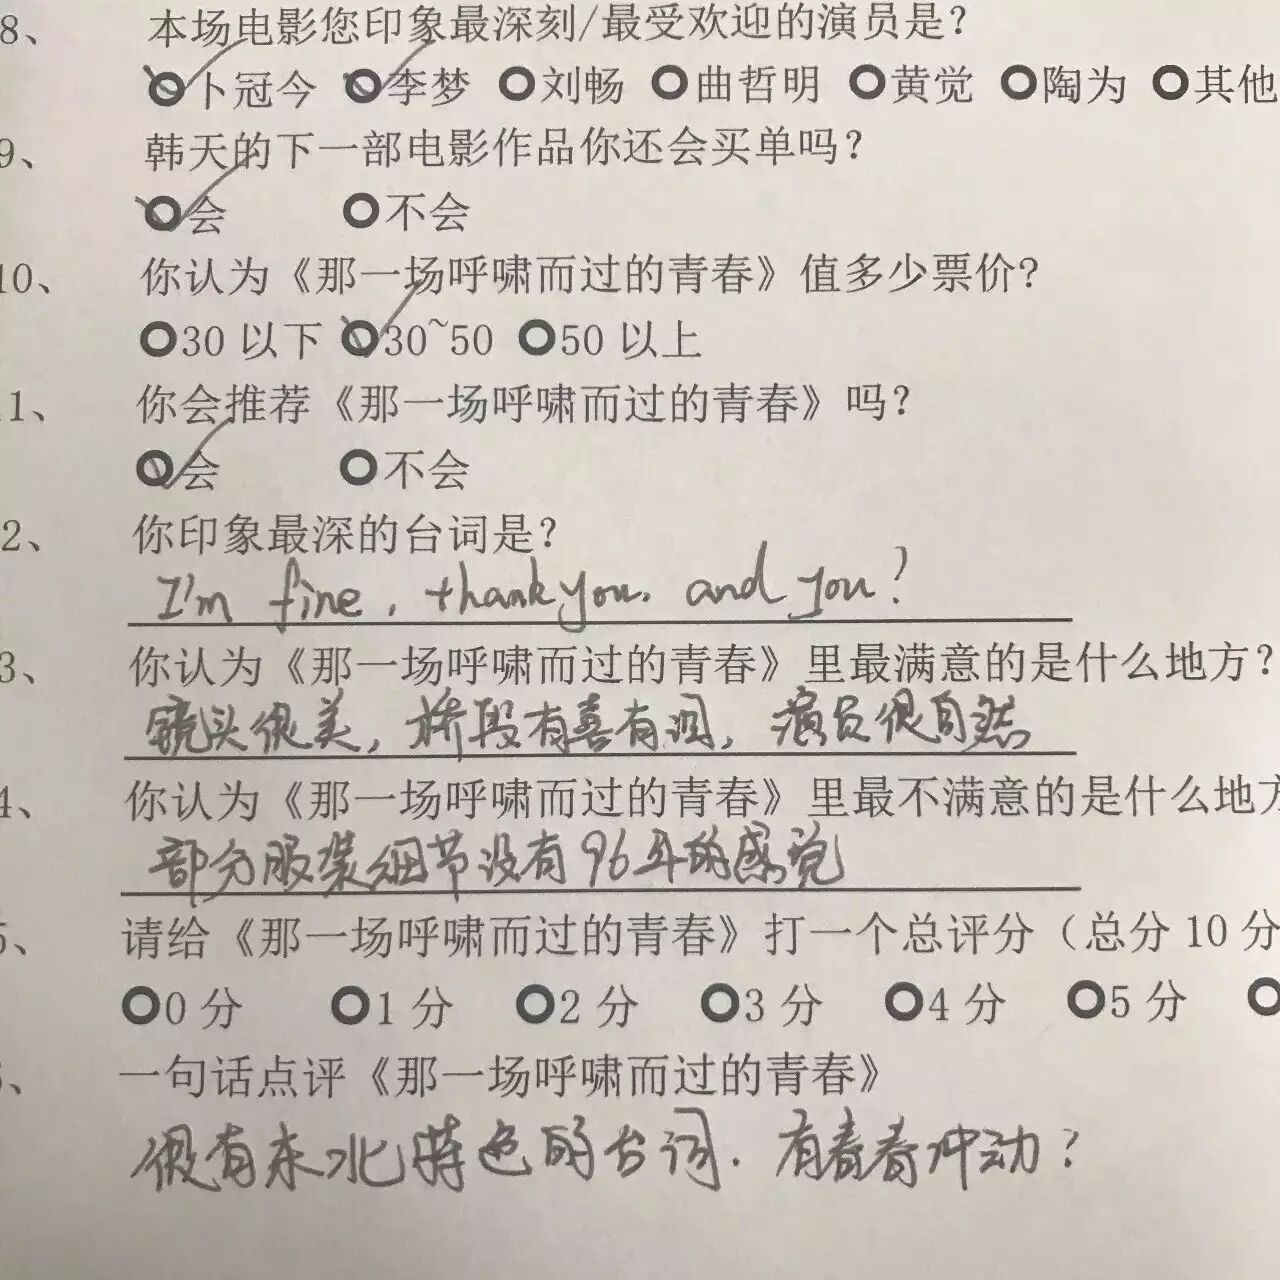 8、 本场电影您印象最深刻/最受欢迎的演员是？
卜冠今 李梦 刘畅 曲哲明 黄觉 陶为 其他
9、 韩天的下一部电影作品你还会买单吗？
会 不会
10、 你认为《那一场呼啸而过的青春》值多少票价？
30 以下 30~50 50 以上
1、 你会推荐《那一场呼啸而过的青春》吗？
会 不会
2、 你印象最深的台词是？
I'm fine, thank you. and you?
3、 你认为《那一场呼啸而过的青春》里最满意的是什么地方？
镜头很美，桥段有喜有泪，演员很自然
4、 你认为《那一场呼啸而过的青春》里最不满意的是什么地方
部分服装细节没有96年的感觉
5、 请给《那一场呼啸而过的青春》打一个总评分（总分 10 分
0 分 1 分 2 分 3 分 4 分 5 分
、 一句话点评《那一场呼啸而过的青春》
很有东北特色的台词. 有青春冲动？